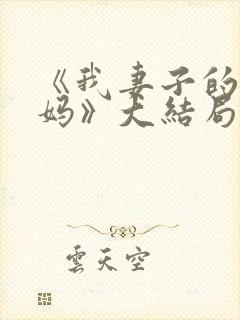 《我妻子的
妈》大结局
雲天空